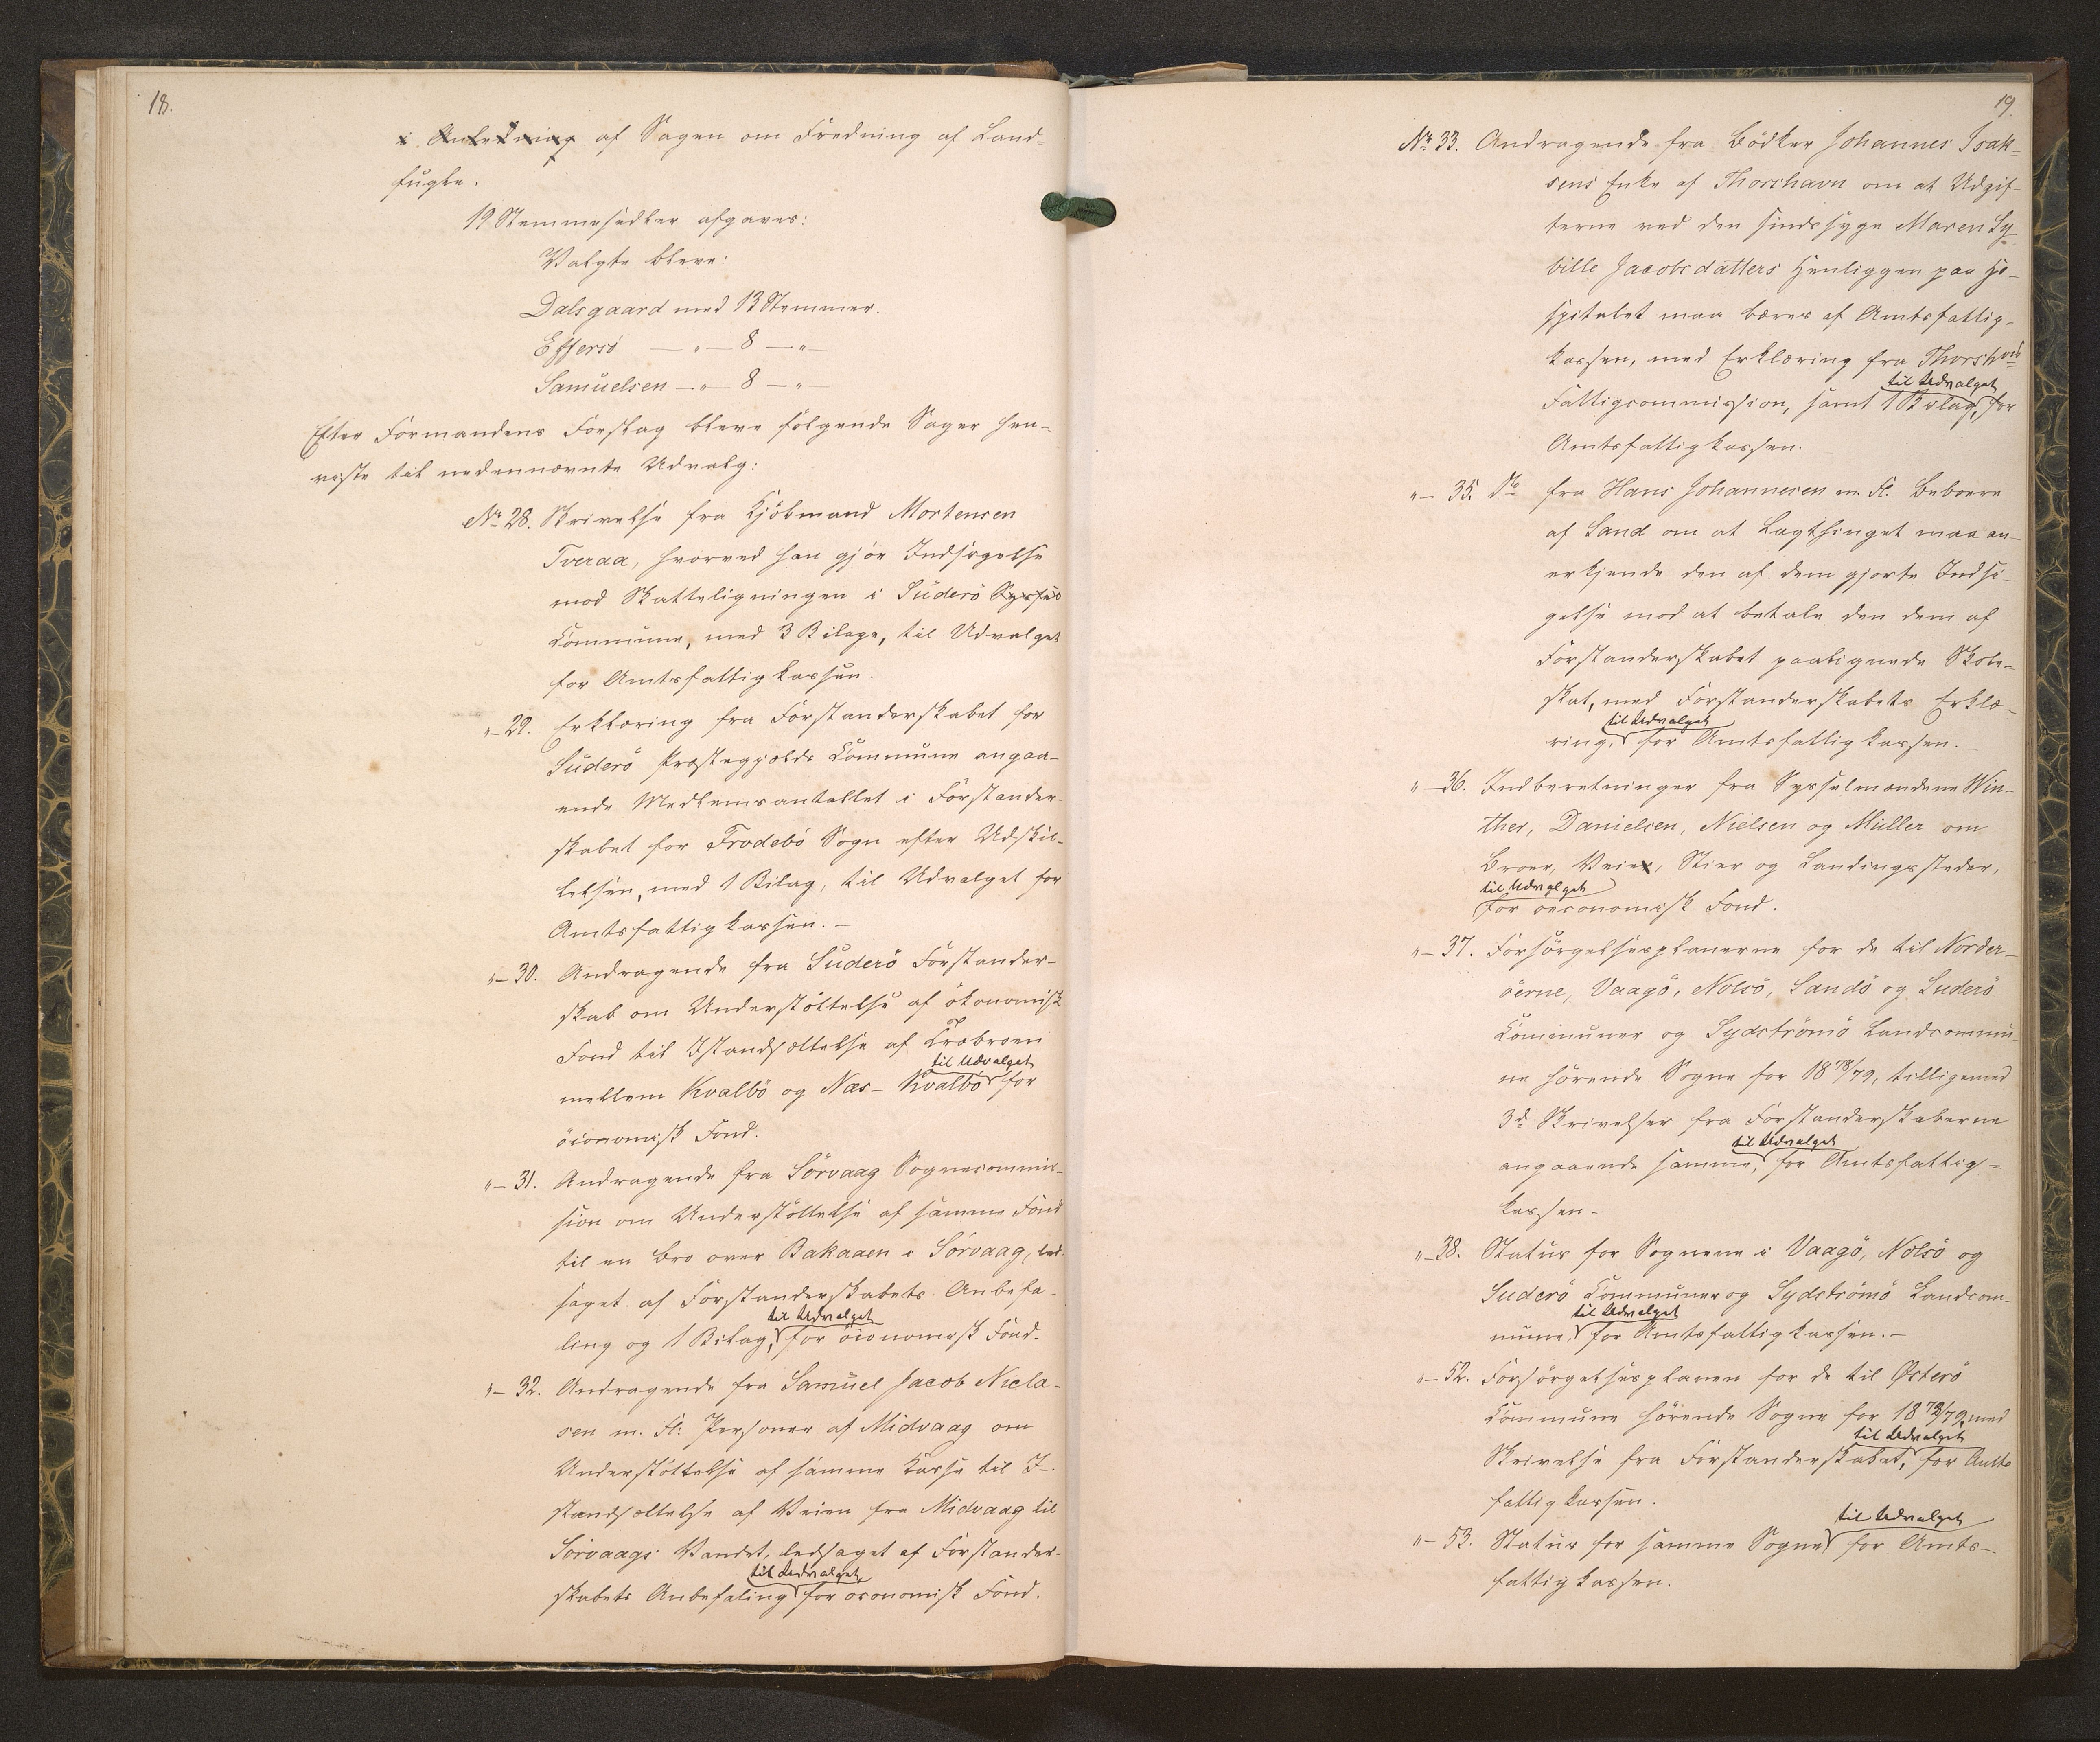 18.
i Anledning af Sagen om Fredning af Land-
fugle.
19 Stemmesedler afgaves:
Valgte bleve:
Dalsgaard med 13 Stemmer.
Effersö —〃— 8 —〃—
Samuelsen —〃— 8 —〃—
Efter Formandens Forslag bleve fölgende Sager hen-
viste til nedennævnte Udvalg:
No 28. Skrivelse fra Kjöbmand Mortensen
Tveraa, hvorved han gjör Indsigelse
mod Skatteligningen i Suderö Syssel
Commune, med 3 Bilage, til Udvalget
for Amtsfattigkassen.
〃— 29. Erklæring fra Forstanderskabet for
Suderö Præstegjælds Commune angaa-
ende Medlemsantallet i Forstander-
skabet for Frodebö Sogn efter Udskil-
lelsen, med 1 Bilag, til Udvalget for
Amtsfattigkassen. —
〃— 30. Andragende fra Suderö Forstander-
skab om Understöttelse af ökonomisk
Fond til Istandsættelse af Træbroen
til Udvalget
mellem Kvalbö og Næs-Kvalbö for
öconomisk Fond.
〃— 31. Andragende fra Sörvaag Sognecommis-
sion om Understöttelse af samme Fond
til en Bro over Bakaaen i Sörvaag, led-
saget af Forstanderskabets Anbefa-
til Udvalget
ling og 1 Bilag, for öconomisk Fond.
〃— 32. Andragende fra Samuel Jacob Nicla-
sen m. Fl. Personer af Midvaag om
Understöttelse af samme Kasse til I-
standsættelse af Veien fra Midvaag til
Sörvaags Vandet, ledsaget af Forstander-
til Udvalget
skabets Anbefaling for oconomisk Fond.
19.
No 33. Andragende fra Bödker Johannes Isak-
sens Enke af Thorshavn om at Udgif-
terne ved den sindssyge Maren Sy-
bille Jacobsdatters Henliggen paa Ho-
spitalet maa bæres af Amtsfattig-
kassen, med Erklæring fra Thorshvns
til Udvalget
Fattigcommission, samt 1 Bilag, for
Amtsfattigkassen.
〃— 35. Do fra Hans Johannesen m. Fl. Beboere
af Sand om at Lagthinget maa an-
erkjende den af dem gjorte Indsi-
gelse mod at betale den dem af
Forstanderskabet paalignede Skole-
skat, med Forstanderskabets Erklæ-
til Udvalget
ring, for Amtsfattigkassen.
〃— 36. Indberetninger fra Sysselmændene Win-
ther, Danielsen, Nielsen og Müller om
Broer, Veie, Stier og Landingssteder,
til Udvalget
for oeconomisk Fond.
〃— 37. Forsörgelsesplanerne for de til Norder-
öerne, Vaagö, Nolsö, Sandö og Suderö
Communer og Sydströmö Landcommu-
ne hörende Sogne for 1878/79, tilligemed
3d Skrivelser fra Forstanderskaberne
til Udvalget
angaaende samme, for Amtsfattig-
kassen.
〃— 38. Status for Sognene i Vaagö, Nolsö og
Suderö Communer og Sydströmö Landcom-
til Udvalget
mune, for Amtsfattigkassen. —
〃— 52. Forsörgelsesplanen for de til Österö
Commune hörende Sogne for 1878/79, med
til Udvalget
Skrivelse fra Forstanderskabet, for Amts
fattigkassen.
til Udvalget
〃— 53. Status for samme Sogne for Amts-
fattigkassen.